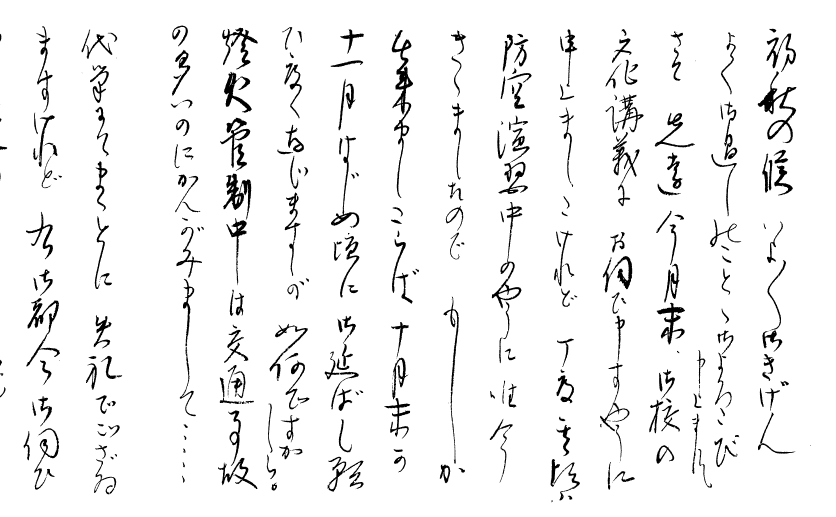 初秋の候 いよ〱御きげん
よく御過しのことゝ御よろこび
申上ます
さて 先達 今月末、御校の
文化講義に お伺ひ申すやうに
申上ましたけれど 丁度其頃は
防空演習中のやうに 唯今
きゝましたので もしか
出来ましたらば 十月末か
十一月はじめ頃に 御延ばし願
ひ度く存じますが 如何ですかしら。
燈火管制中は 交通事故
の多いのにかんがみまして……
代筆にてまことに 失礼でござゐ
ますけれど 右御都合御伺ひ